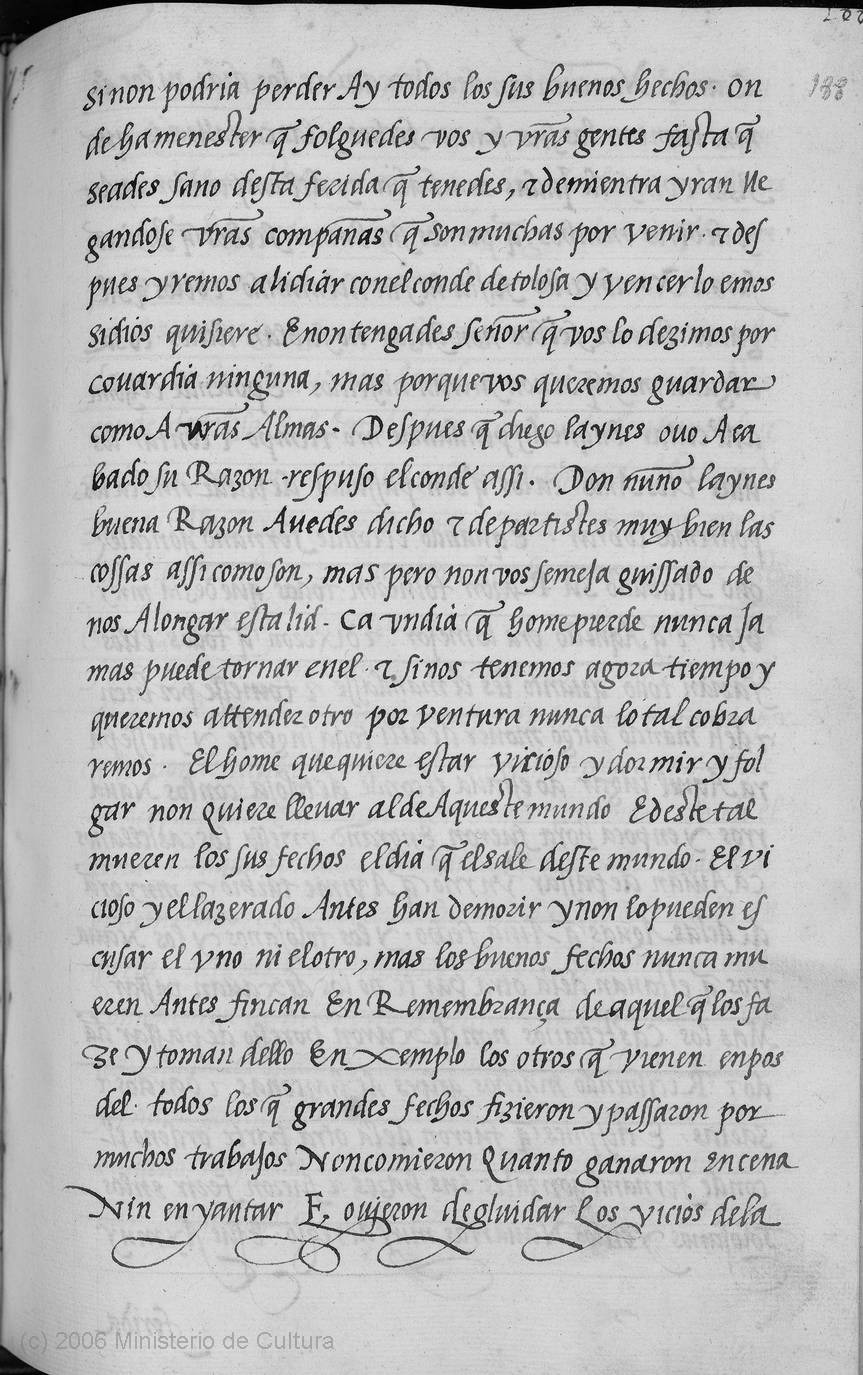 188
sinon podria perder Ay todos los sus buenos hechos. on
de ha menester q̃ folguedes vos y vr̃as gentes fasta q̃
seades sano desta ferida q̃ tenedes, ⁊ demientra yran lle
gandose vr̃as compañas q̃ son muchas por venir. ⁊ des
pues yremos a lidiar con el conde de tolosa y vencerlo emos
si diòs quisiere. E non tengades señor q̃ vos lo dezimos por
couardia ninguna, mas porque vos queremos guardar
como A vr̃as Almas. Despues q̃ diego laynes ouo Aca
bado su Razon respuso el conde assi. Don nuño laynes
buena Razon Auedes dicho ⁊ departistes muy bien las
cossas assi como son, mas pero non vos semeja guissado de
nos Alongar esta lid. Ca vn dia q̃ home pierde nunca Ja
mas puede tornar en el. ⁊ si nos tenemos agora tiempo y
queremos attender otro por ventura nunca lo tal cobra
remos. El home que quiere estar vicioso y dormir y fol
gar non quiere lleuar al de Aqueste mundo E deste tal
mueren los sus fechos el dia q̃ el sale deste mundo. El vi
cioso y el lazerado Antes han de morir y non lo pueden es
cusar el vno ni el otro, mas los buenos fechos nunca mu
eren Antes fincan En Remembrança de aquel q̃ los fa
ze y toman dello Enxemplo los otros q̃ vienen enpos
del. todos los q̃ grandes fechos fizieron y passaron por
muchos trabajos Non comieron Quanto ganaron en cena
Nin en yantar E, ouieron de gluidar Los viciòs de la
(c) 2006 Ministerio de Cultura